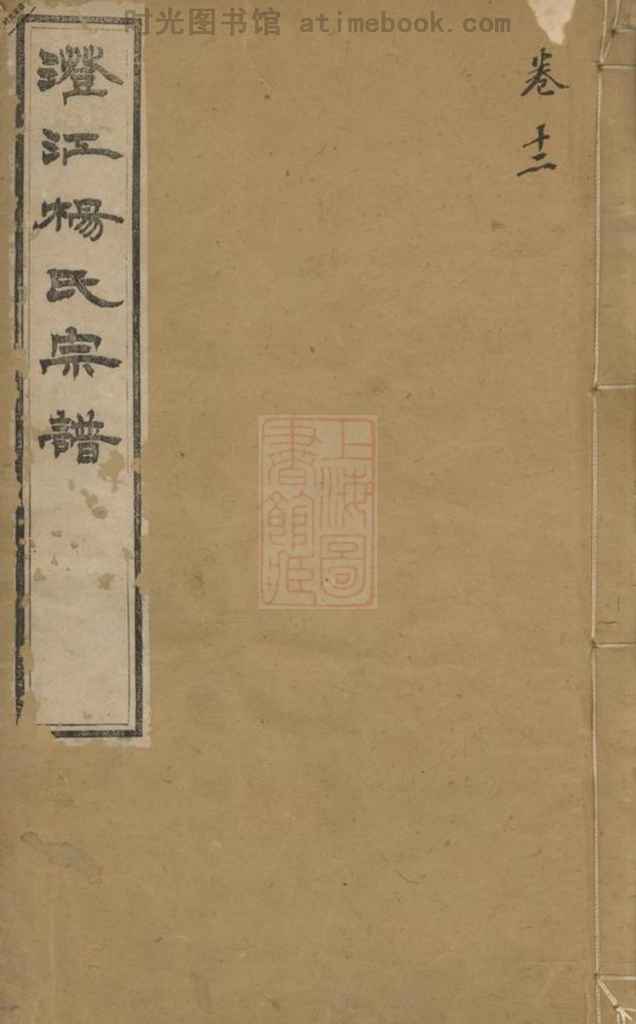 时光图书馆 atimebook.com
卷十二
澄江楊氏宗譜
上海圖
書館臧